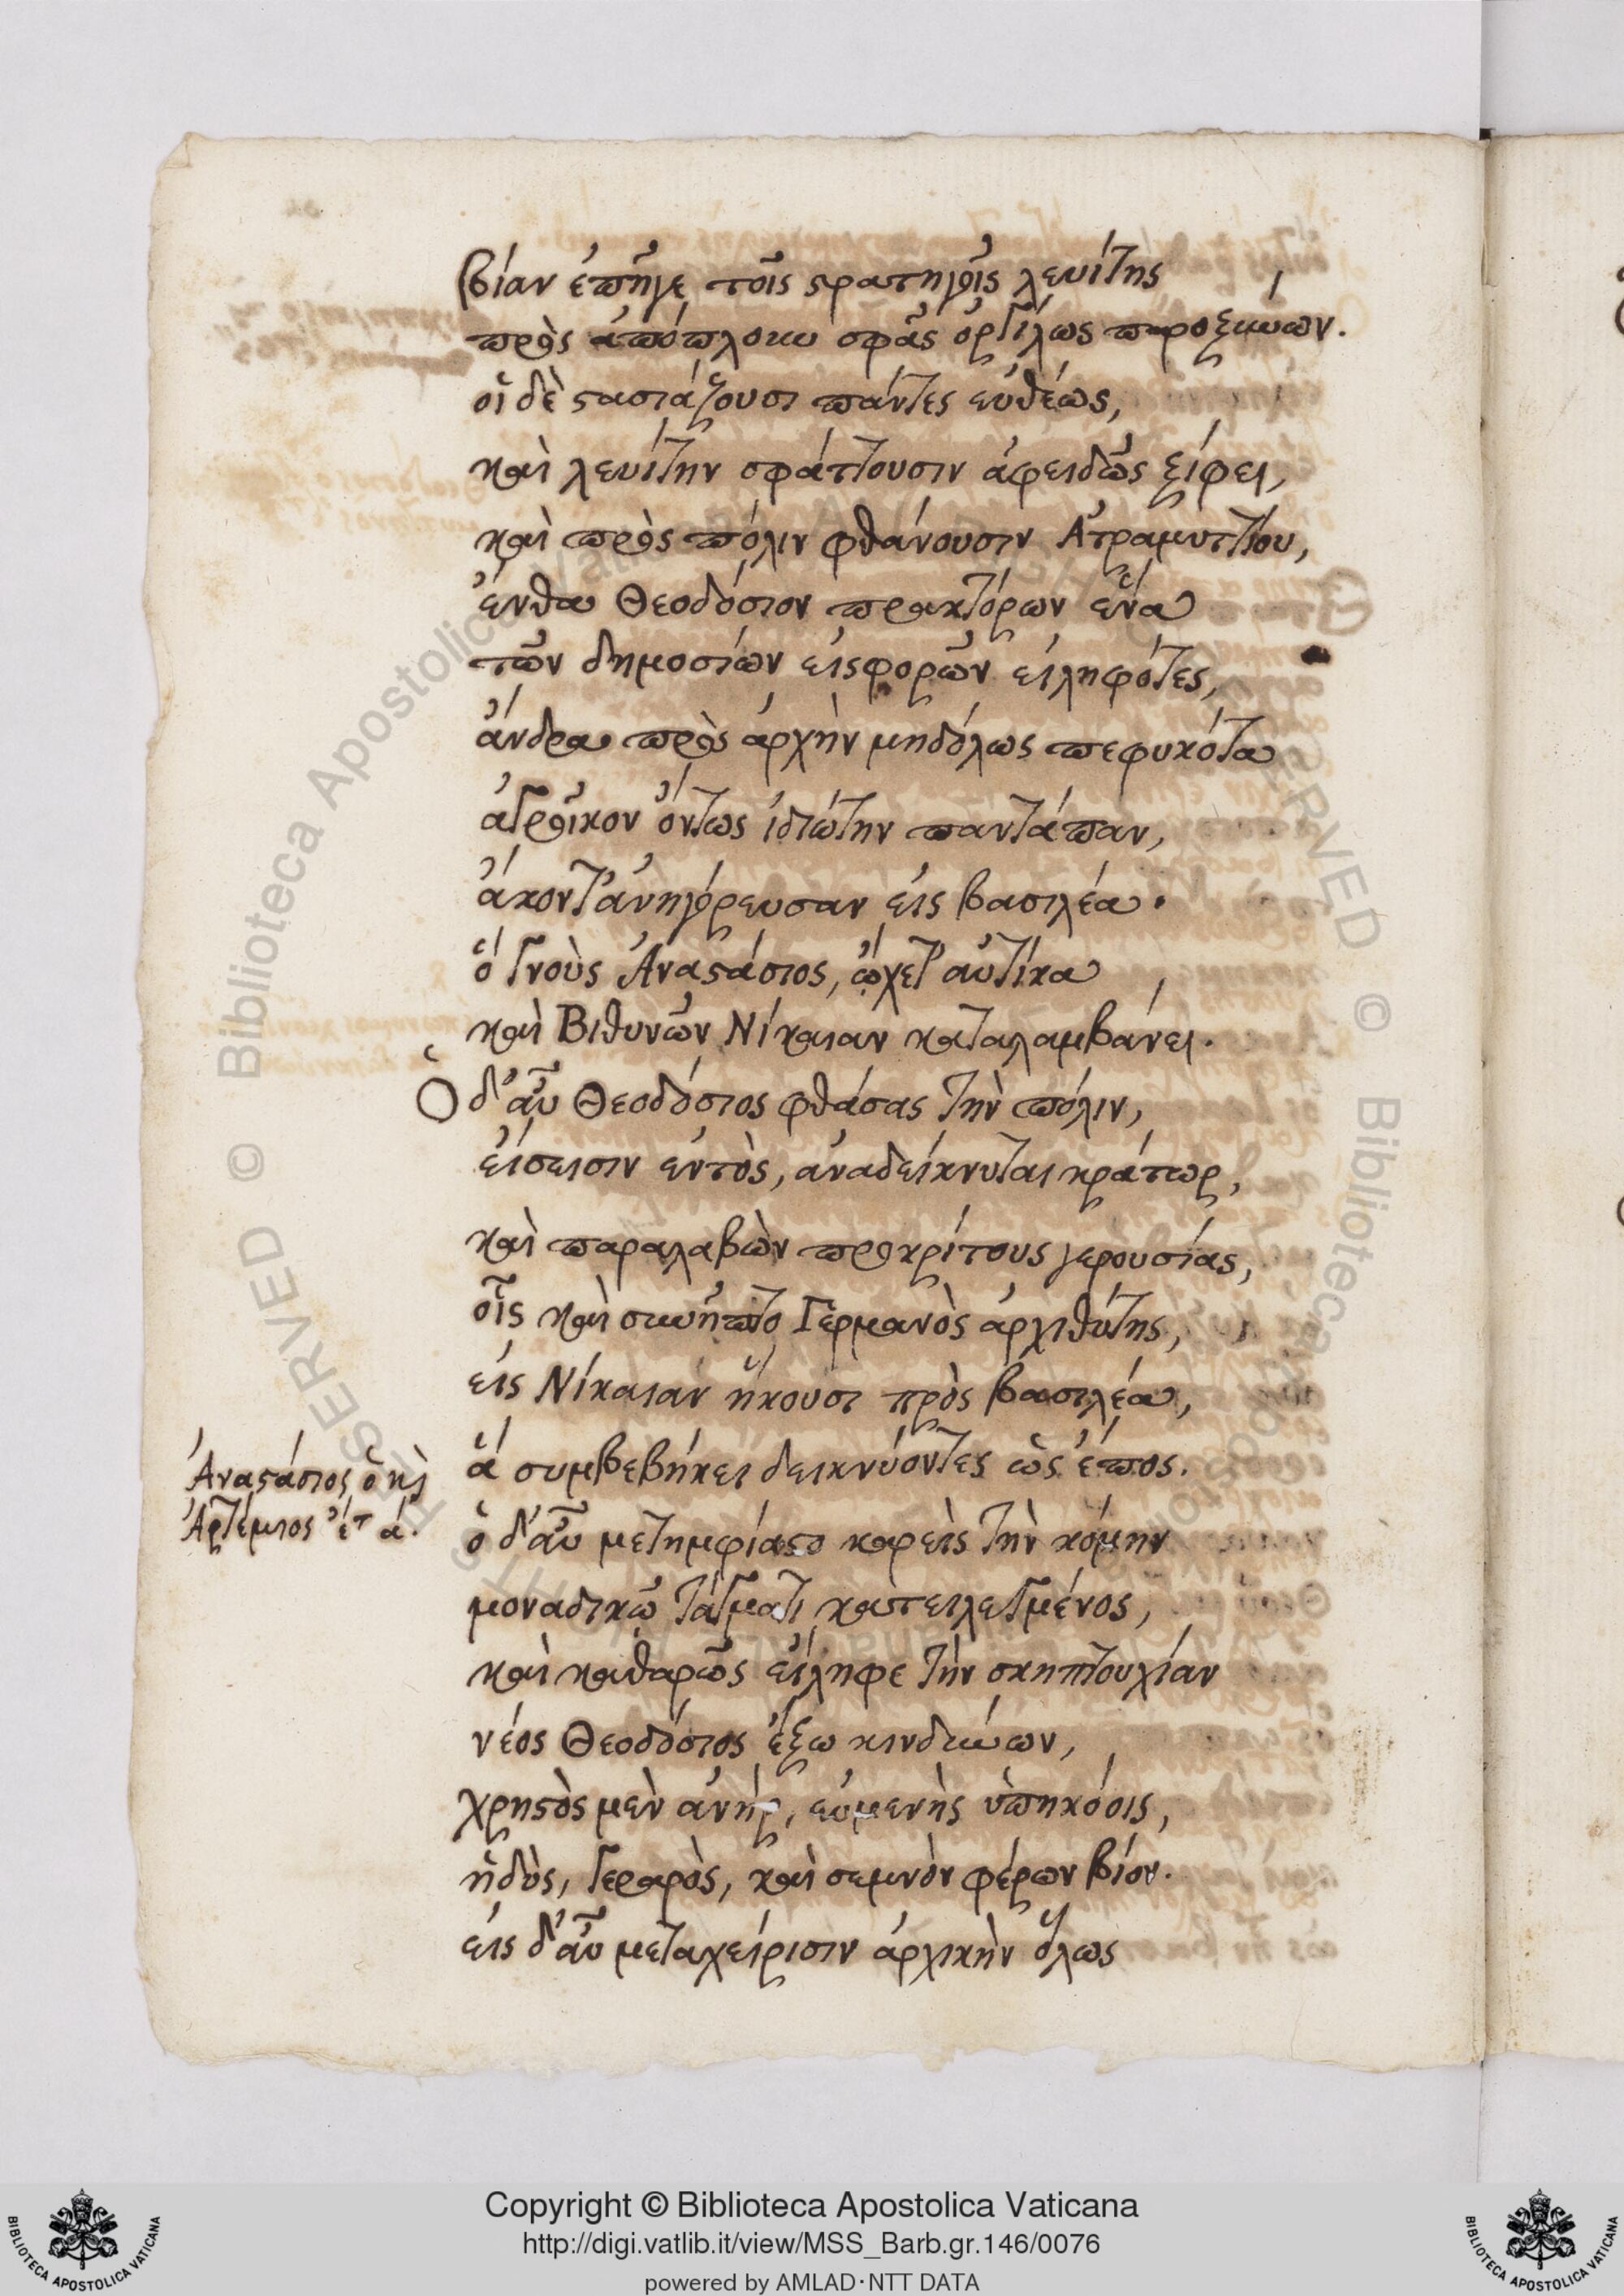 βίαν ἐπῆγε τοῖς στρατηγοῖς λευίτης
πρὸς ἀπόπλουν σφᾶς ὀργίλως παροξύνων.
οἱ δὲ στασιάζουσι πάντες εὐθέως,
καὶ λευίτην σφάττουσιν ἀφειδῶς ξίφει,
καὶ πρὸς πόλιν φθάνουσιν Ἀτραμυττίου,
ἔνθα Θεοδόσιον πρακτόρων ἕνα
τῶν δημοσίων εἰσφορῶν εἰληφότες,
ἄνδρα πρὸς ἀρχὴν μηδόλως πεφυκότα
ἀγροῖκον ὄντως ἰδιώτην παντάπαν,
ἄκοντ' ἀνηγόρευσαν εἰς βασιλέα.
ὃ γνοὺς Ἀναστάσιος, ᾤχετ' αὐτίκα
καὶ Βιθυνῶν Νίκαιαν καταλαμβάνει.
Ὁ δ' αὖ Θεοδόσιος φθάσας τὴν πόλιν,
εἴσεισιν ἐντὸς, ἀναδείκνυται κράτωρ,
καὶ παραλαβὼν προκρίτους γερουσίας,
οἷς καὶ συνήπτο Γερμανὸς ἀρχιθύτης,
εἰς Νίκαιαν ἥκουσι πρὸς βασιλέα,
ἃ συμβεβήκει δεικνύοντες ὡς ἔπος.
Ἀναστάσιος ὁ καὶ
Ἀρτέμιος ἔτ α.
ὁ δ' αὖ μετημφίαστο καρεὶς τὴν κόμην
μοναδικῷ τάγματι κατειλεγμένος,
καὶ καθαρῶς εἴληφε τὴν σκηπτουχίαν
νέος Θεοδόσιος ἔξω κινδύνων,
χρηστὸς μὲν ἀνὴρ, εὐμενὴς ὑπηκόοις,
ἡδὺς, γεραρὸς, καὶ σεμνὸν φέρων βίον.
εἰς δ' αὖ μεταχείρισιν ἀρχικὴν ὅλως
RESERVED © Biblioteca Apostolica Vaticana
Copyright © Biblioteca Apostolica Vaticana
http://digi.vatlib.it/view/MSS_Barb.gr.146/0076
powered by AMLAD·NTT DATA
BIBLIOTECA APOSTOLICA VATICANA
BIBLIOTECA APOSTOLICA VATICANA